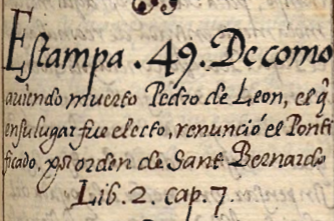 Estampa .49. De como
auiendo muerto Pedro de Leon, el q̃
en su lugar fue electo, renunció el Ponti
ficado, por orden de Sant Bernardo
Lib. 2. cap. 7.